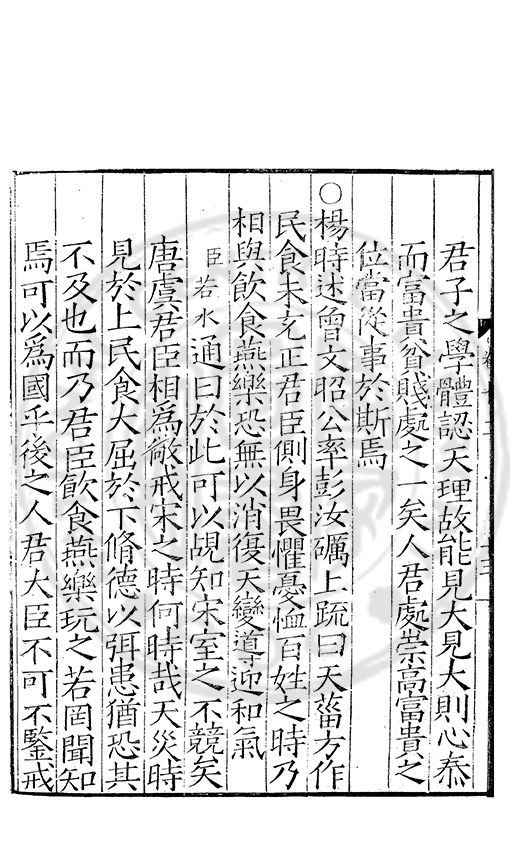 君子之學體認天理故能見大見大則心泰
而富貴貧賤處之一矣人君處崇高富貴之
位當從事於斯焉
○楊時述曾文昭公率彭汝礪上疏曰天菑方作
民食未充正君臣側身畏懼憂恤百姓之時乃
相與飲食燕樂恐無以消復天變導迎和氣
臣若水通曰於此可以覘知宋室之不競矣
唐虞君臣相為儆戒宋之時何時哉天災時
見於上民食大屈於下脩德以弭患猶恐其
不及也而乃君臣飲食燕樂玩之若罔聞知
焉可以為國乎後之人君大臣不可不鑒戒